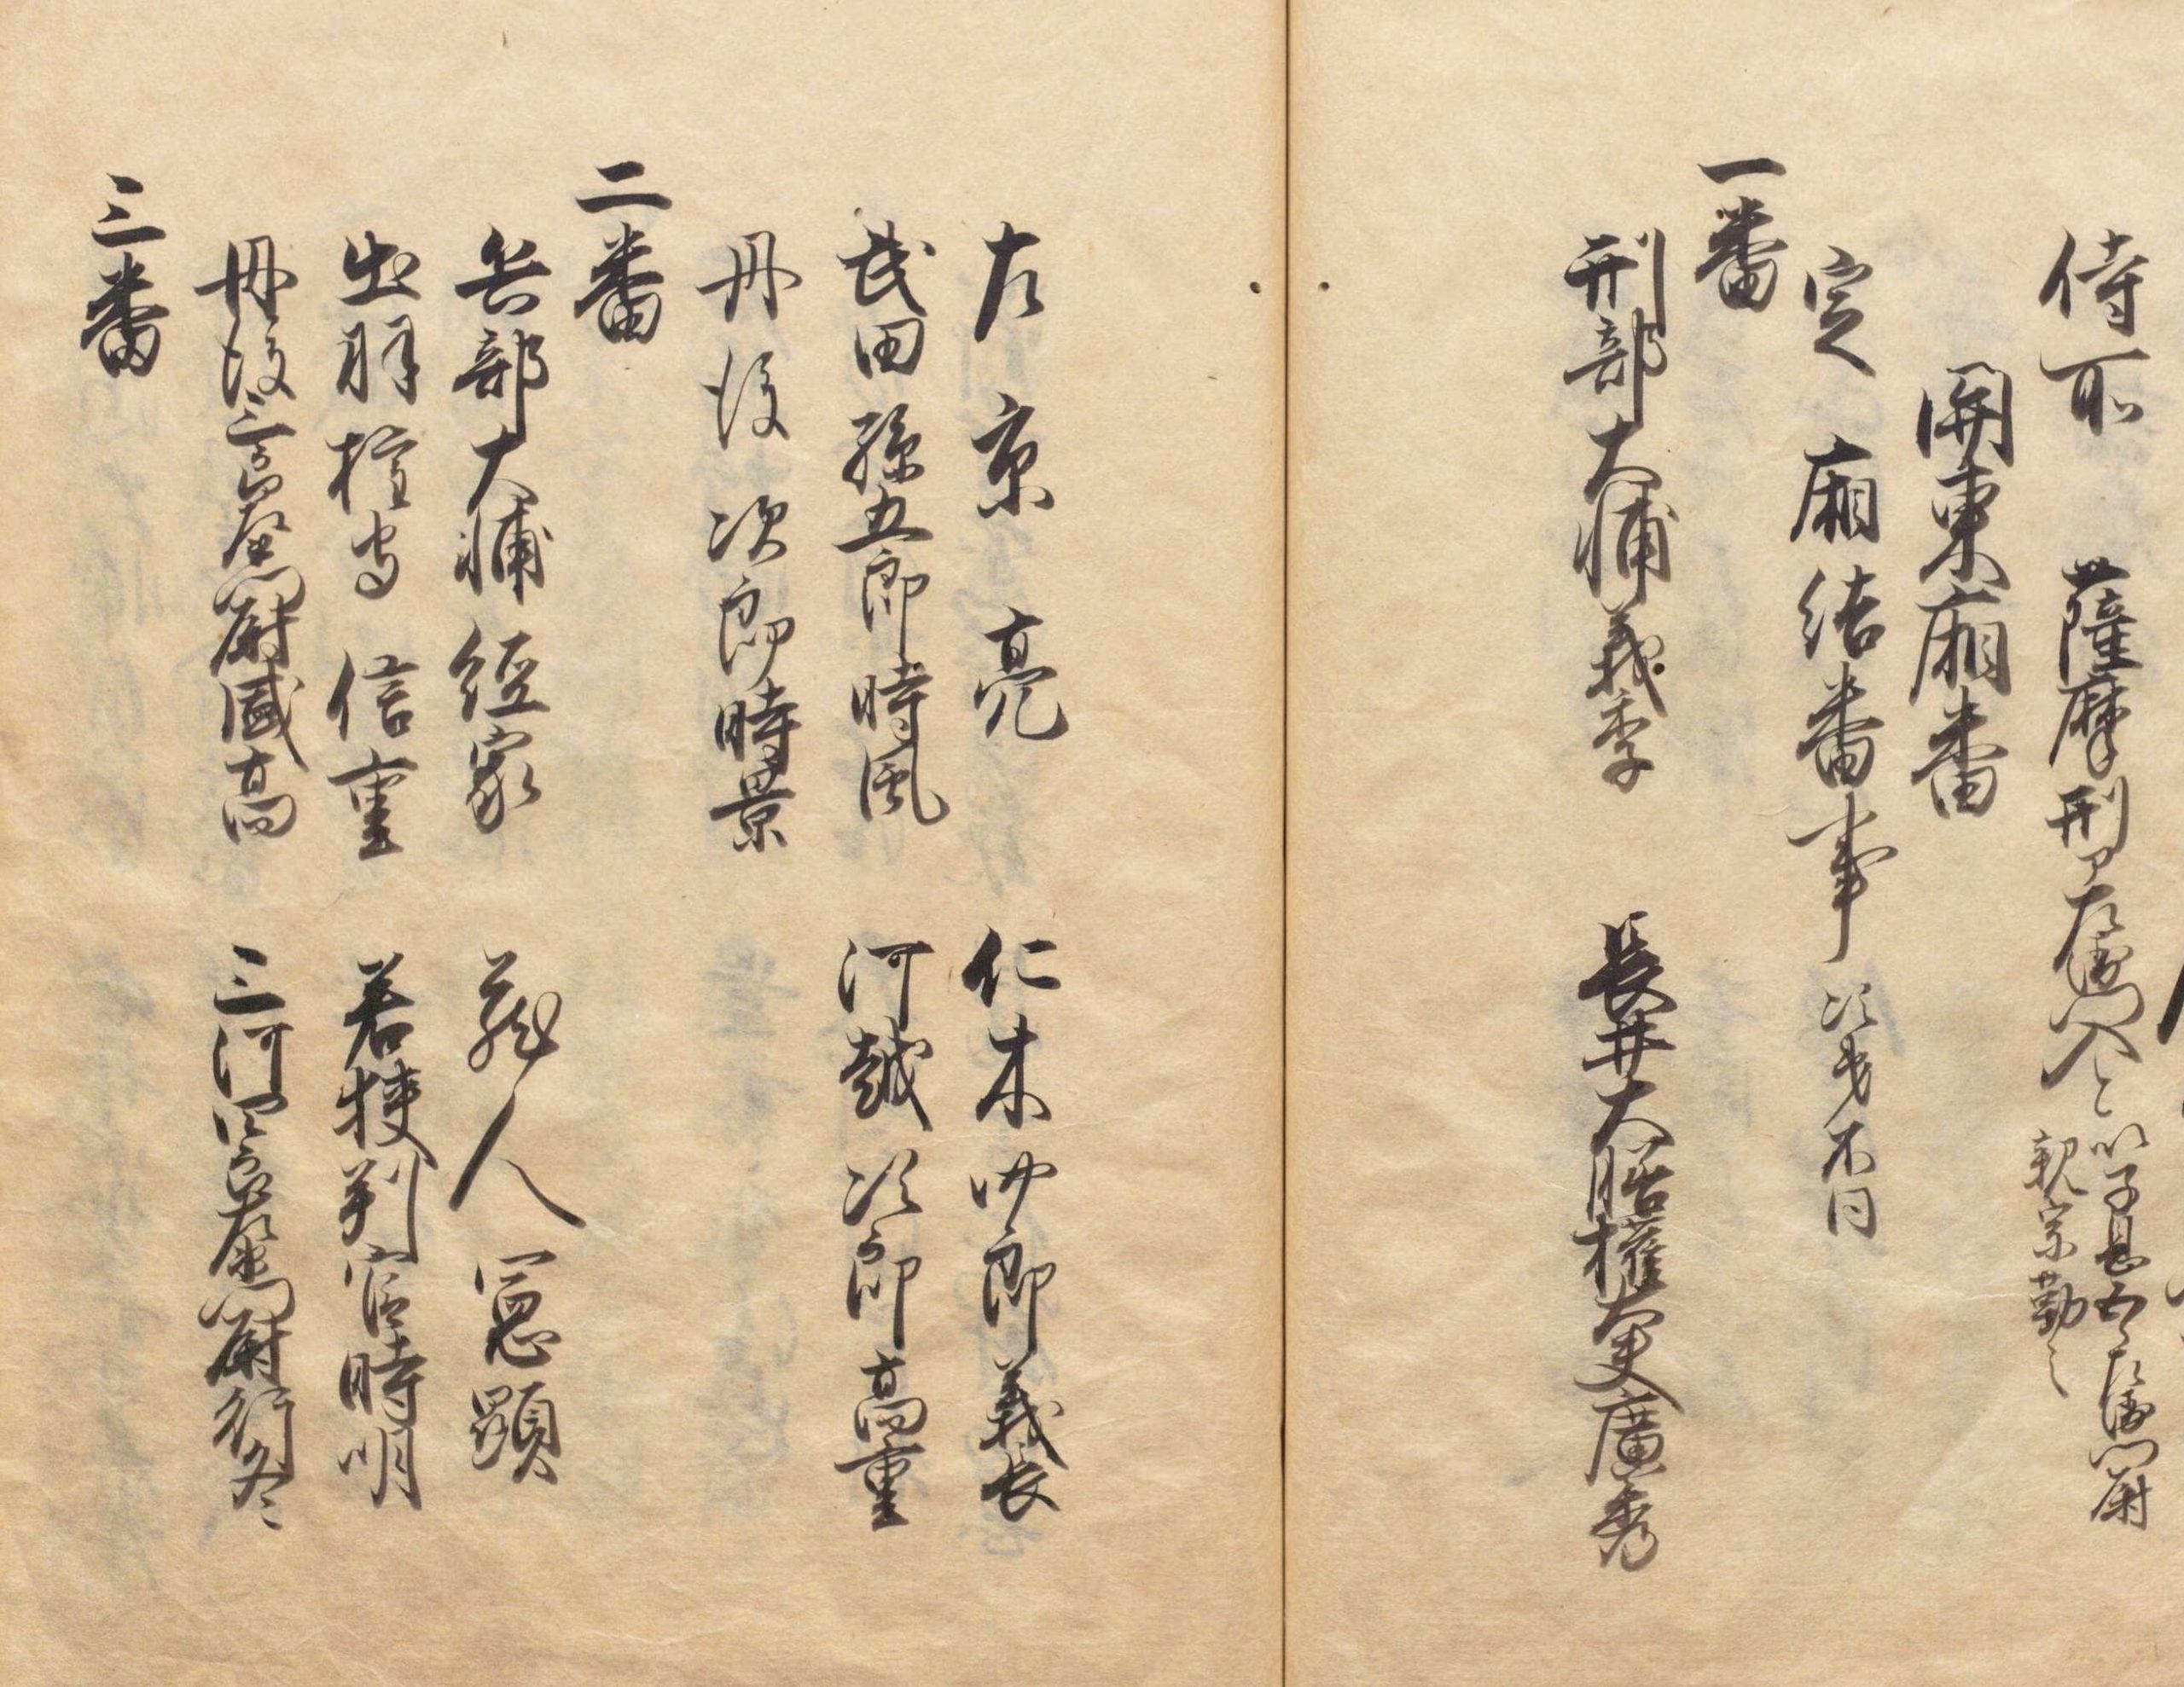 侍所 薩摩刑ア左衛門入〻 以子息五〻左衛門尉
親宗勤之
関東廂番
定 廂結番事 次第不同
一番
刑部大輔義季 長井大膳権大夫廣秀
左京亮 仁木四郎義長
武田孫五郎時風 河越次郎高重
丹後次郎時景
二番
兵部大輔経家 蔵人憲顕
出羽権守信重 若狭判官時明
丹後三郎左衛門尉盛高 三河四郎左衛門尉行冬
三番